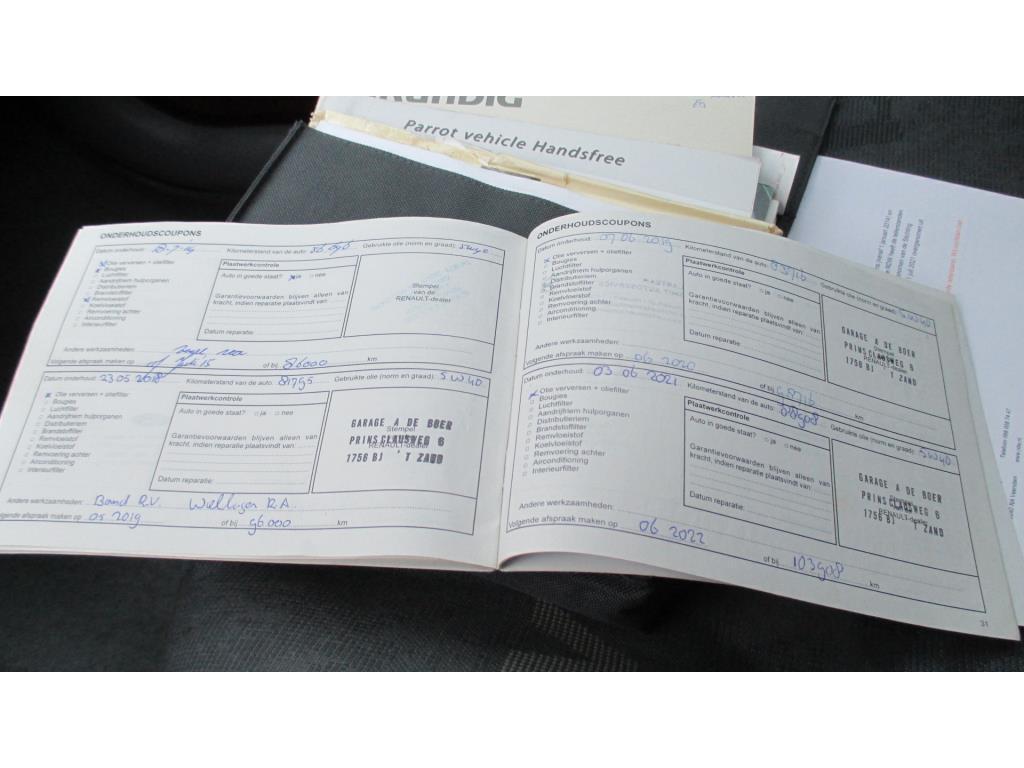 GRUNDIG
Parrot vehicle Handsfree
ONDERHOUDSCOUPONS
Datum onderhoud: Kilometerstand van de auto: Gebruikte olie (norm en graad): 5W40
Olie verversen + oliefilter
Bougies
Luchtfilter
Aandrijfriem hulporganen
Distributieriem
Brandstoffilter
Remvloeistof
Koelvloeistof
Remvoering achter
Airconditioning
Interieurfilter
Plaatwerkcontrole
Auto in goede staat? ja nee
Garantievoorwaarden blijven alleen van
kracht, indien reparatie plaatsvindt van:
Datum reparatie:
Stempel
van de
RENAULT-dealer
Andere werkzaamheden:
Volgende afspraak maken op of bij 86000 km
Datum onderhoud: 23 05 2018 Kilometerstand van de auto: 81795 Gebruikte olie (norm en graad): 5W40
Olie verversen + oliefilter
Bougies
Luchtfilter
Aandrijfriem hulporganen
Distributieriem
Brandstoffilter
Remvloeistof
Koelvloeistof
Remvoering achter
Airconditioning
Interieurfilter
Plaatwerkcontrole
Auto in goede staat? ja nee
Garantievoorwaarden blijven alleen van
kracht, indien reparatie plaatsvindt van:
Datum reparatie:
GARAGE A DE BOER
Stempel
PRINSCLAUSWEG 6
RENAULT-dealer
1756 BJ 'T ZAND
Andere werkzaamheden: Band R.V. Wiellager R.A.
Volgende afspraak maken op 05 2019 of bij 96000 km
ONDERHOUDSCOUPONS
Datum onderhoud: 07 06 2019 Kilometerstand van de auto: Gebruikte olie (norm en graad): 5W40
Olie verversen + oliefilter
Bougies
Luchtfilter
Aandrijfriem hulporganen
Distributieriem
Brandstoffilter
Remvloeistof
Koelvloeistof
Remvoering achter
Airconditioning
Interieurfilter
Plaatwerkcontrole
Auto in goede staat? ja nee
Garantievoorwaarden blijven alleen van
kracht, indien reparatie plaatsvindt van:
Datum reparatie:
GARAGE A DE BOER
PRINSCLAUSWEG 6
RENAULT-dealer
1756 BJ 'T ZAND
Andere werkzaamheden:
Volgende afspraak maken op 06 2020 of bij km
Datum onderhoud: 03 06 2021 Kilometerstand van de auto: Gebruikte olie (norm en graad): 5W40
Olie verversen + oliefilter
Bougies
Luchtfilter
Aandrijfriem hulporganen
Distributieriem
Brandstoffilter
Remvloeistof
Koelvloeistof
Remvoering achter
Airconditioning
Interieurfilter
Plaatwerkcontrole
Auto in goede staat? ja nee
Garantievoorwaarden blijven alleen van
kracht, indien reparatie plaatsvindt van:
Datum reparatie:
GARAGE A DE BOER
PRINSCLAUSWEG 6
RENAULT-dealer
1756 BJ 'T ZAND
Andere werkzaamheden:
Volgende afspraak maken op 06 2022 of bij 103908 km
31